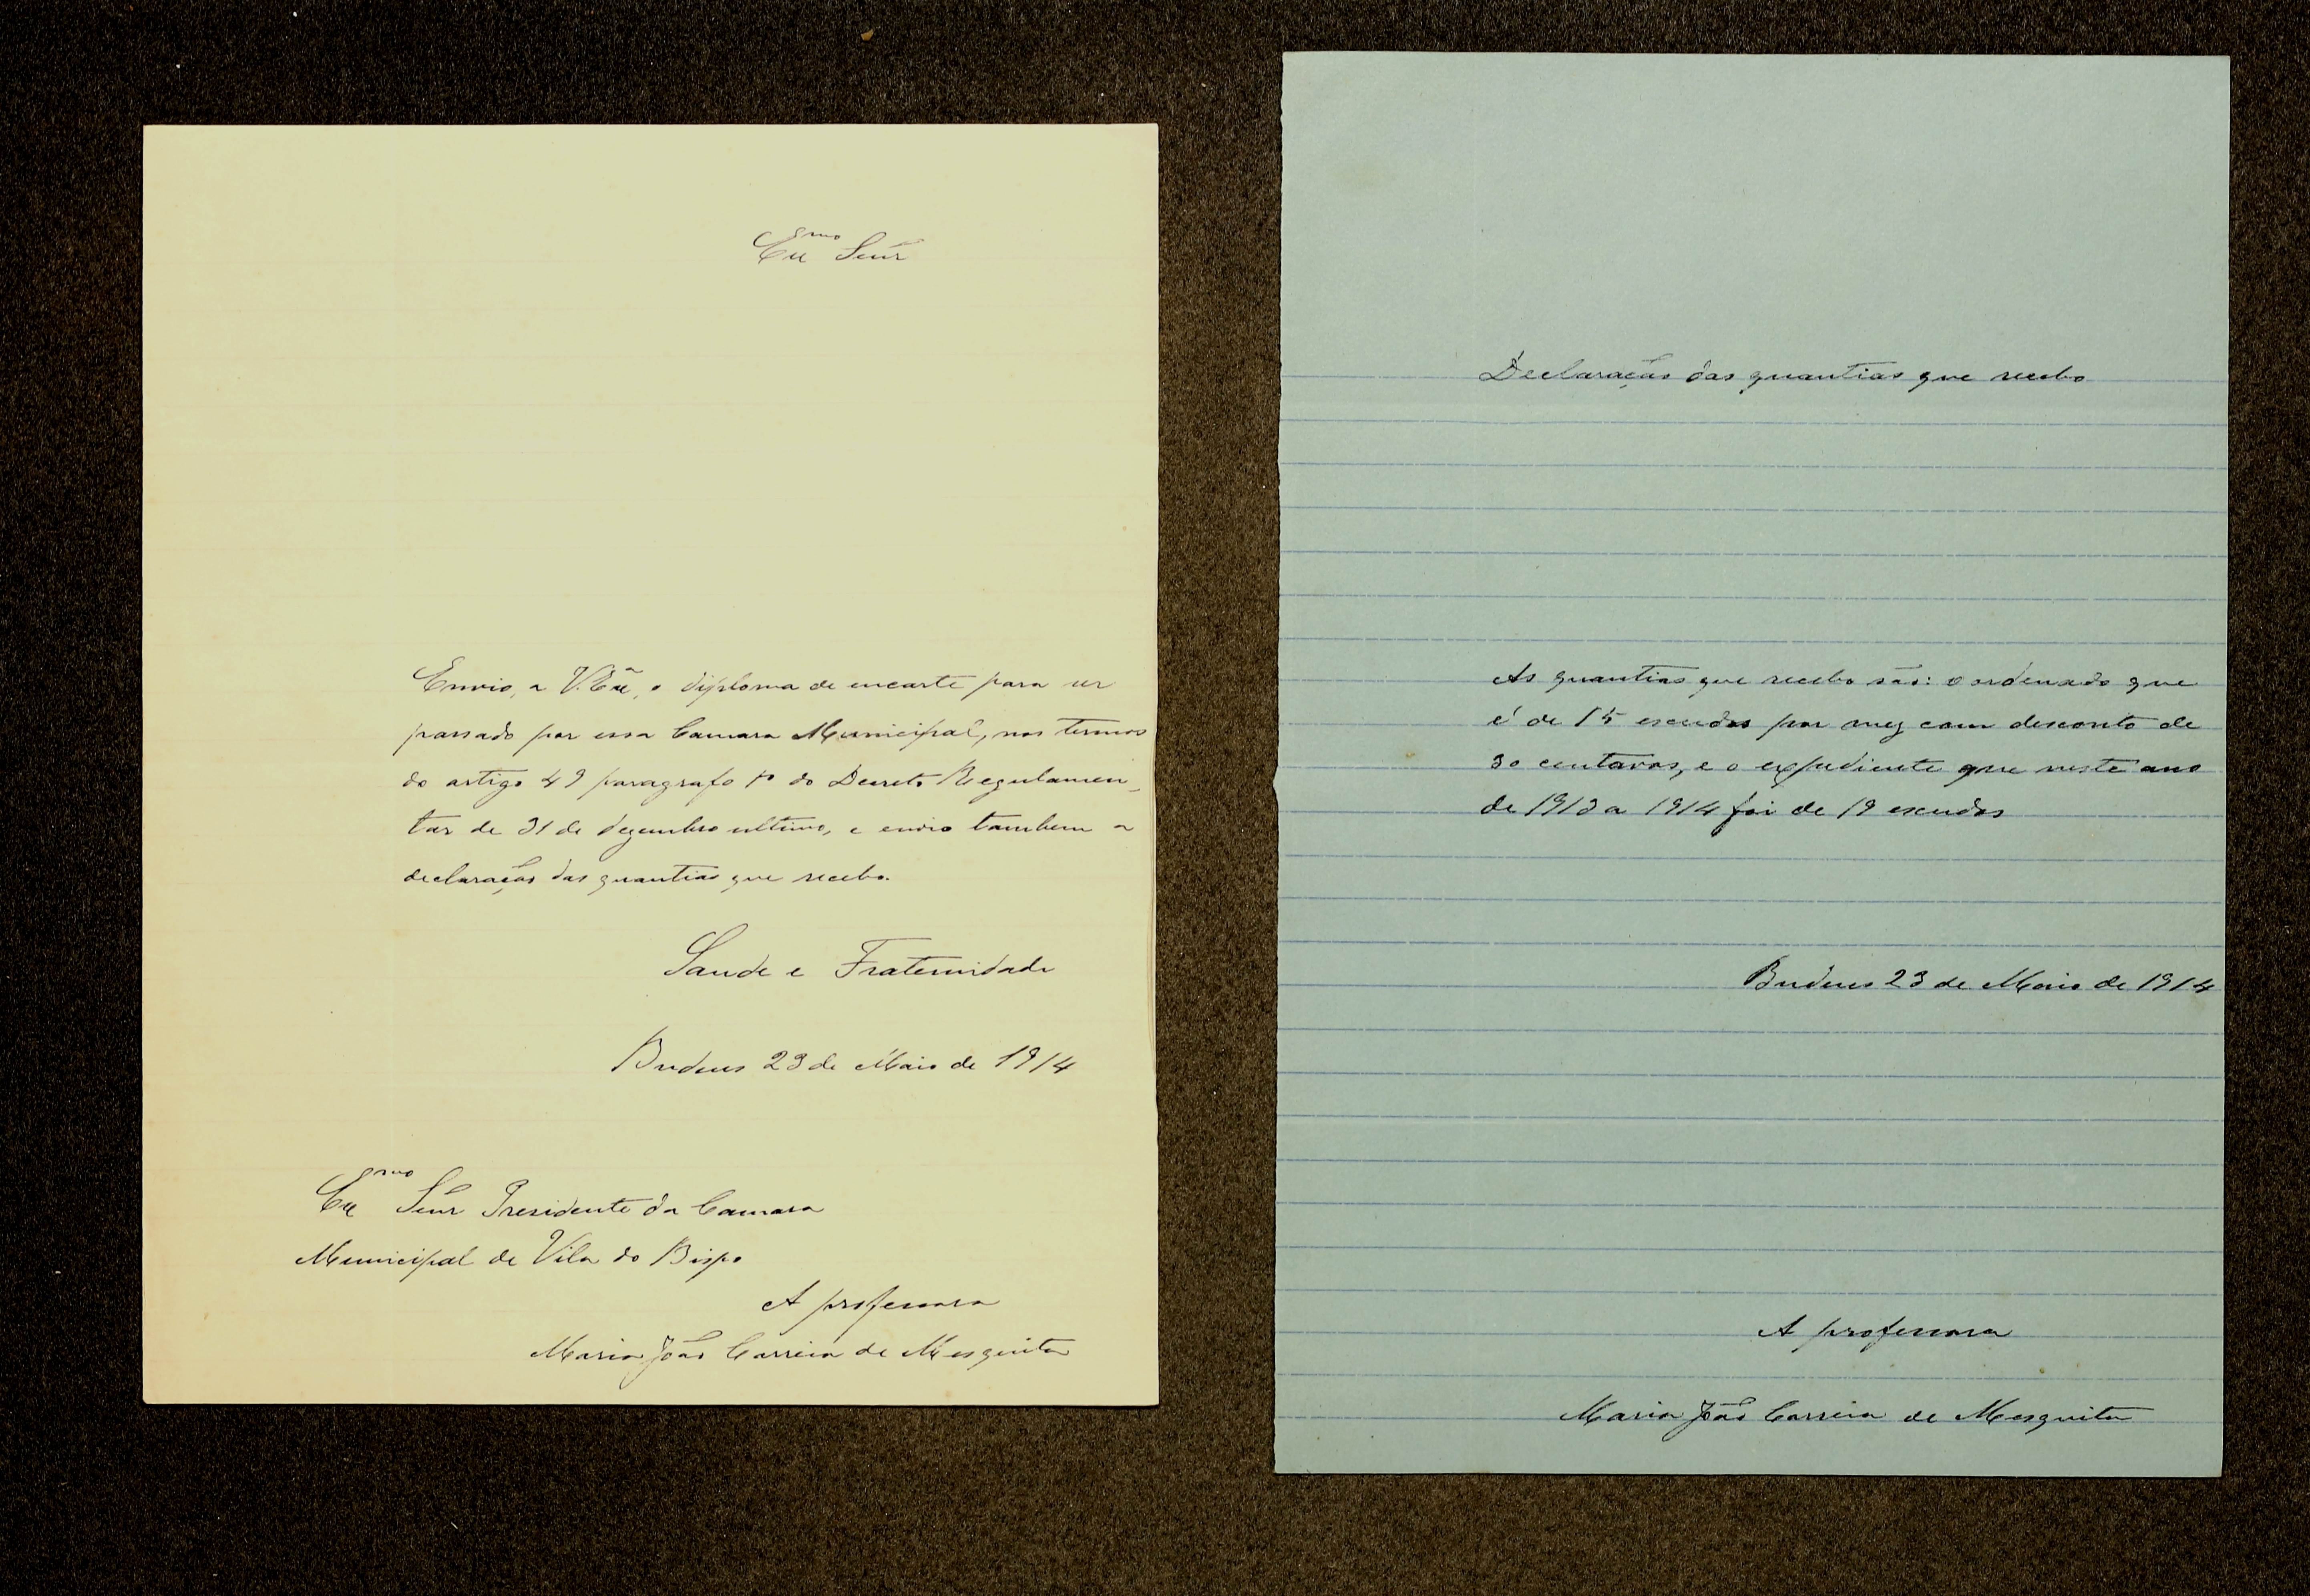 Exmo Senr
Envio, a V. Exã, o diploma de encarte para ser
passado por essa Camara Municipal, nos termos
do artigo 49 paragrafo 1º do Decreto Regulamen-
tar de 31 de dezembro ultimo, e envio tambem a
declaração das quantias que recebo.
Saude e Fraternidade
Budens 23 de Maio de 1914
Exmo Senr Presidente da Camara
Municipal de Vila do Bispo
A professora
Maria João Correia de Mesquita
Declaração das quantias que recebo
As quantias que recebo são: o ordenado que
é de 15 escudos por mez com desconto de
30 centavos, e o expediente que neste ano
de 1913 a 1914 foi de 19 escudos
Budens 23 de Maio de 1914
A professora
Maria João Correia de Mesquita